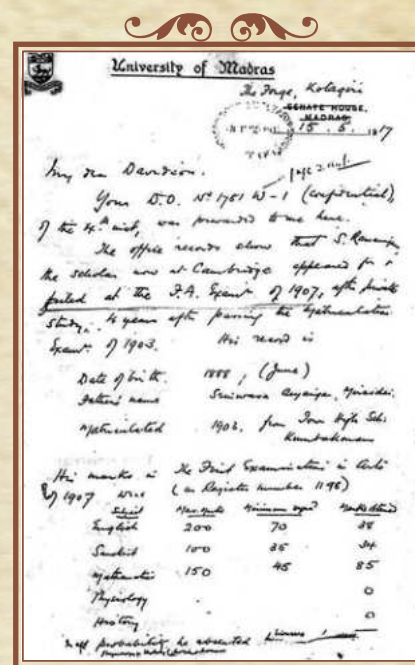 University of Madras
The Forge, Kotagiri
SENATE HOUSE,
MADRAS
15. 5. 1917
My dear Davidson.
Your D.O. Nº 1751 W-1 (confidential),
of the 4th inst, was forwarded to me here.
The office records show that S. Ramanujan
the scholar now at Cambridge appeared for &
failed at the F.A. Examn. of 1907, after private
study. 4 years after passing the Matriculation
Examn. of 1903. His record is
Date of birth. 1888, (June)
Father's name Srinivasa Aiyangar,
Matriculated 1903. from Town High Sch.
Kumbakonam
His marks in The First Examination in Arts
of 1907 were (as Register number 1198)
Subject Max. Marks Minimum reqd Marks obtained
English 200 70 38
Sanskrit 100 35 34
Mathematics 150 45 85
Physiology 0
History 0
In all probability he absented